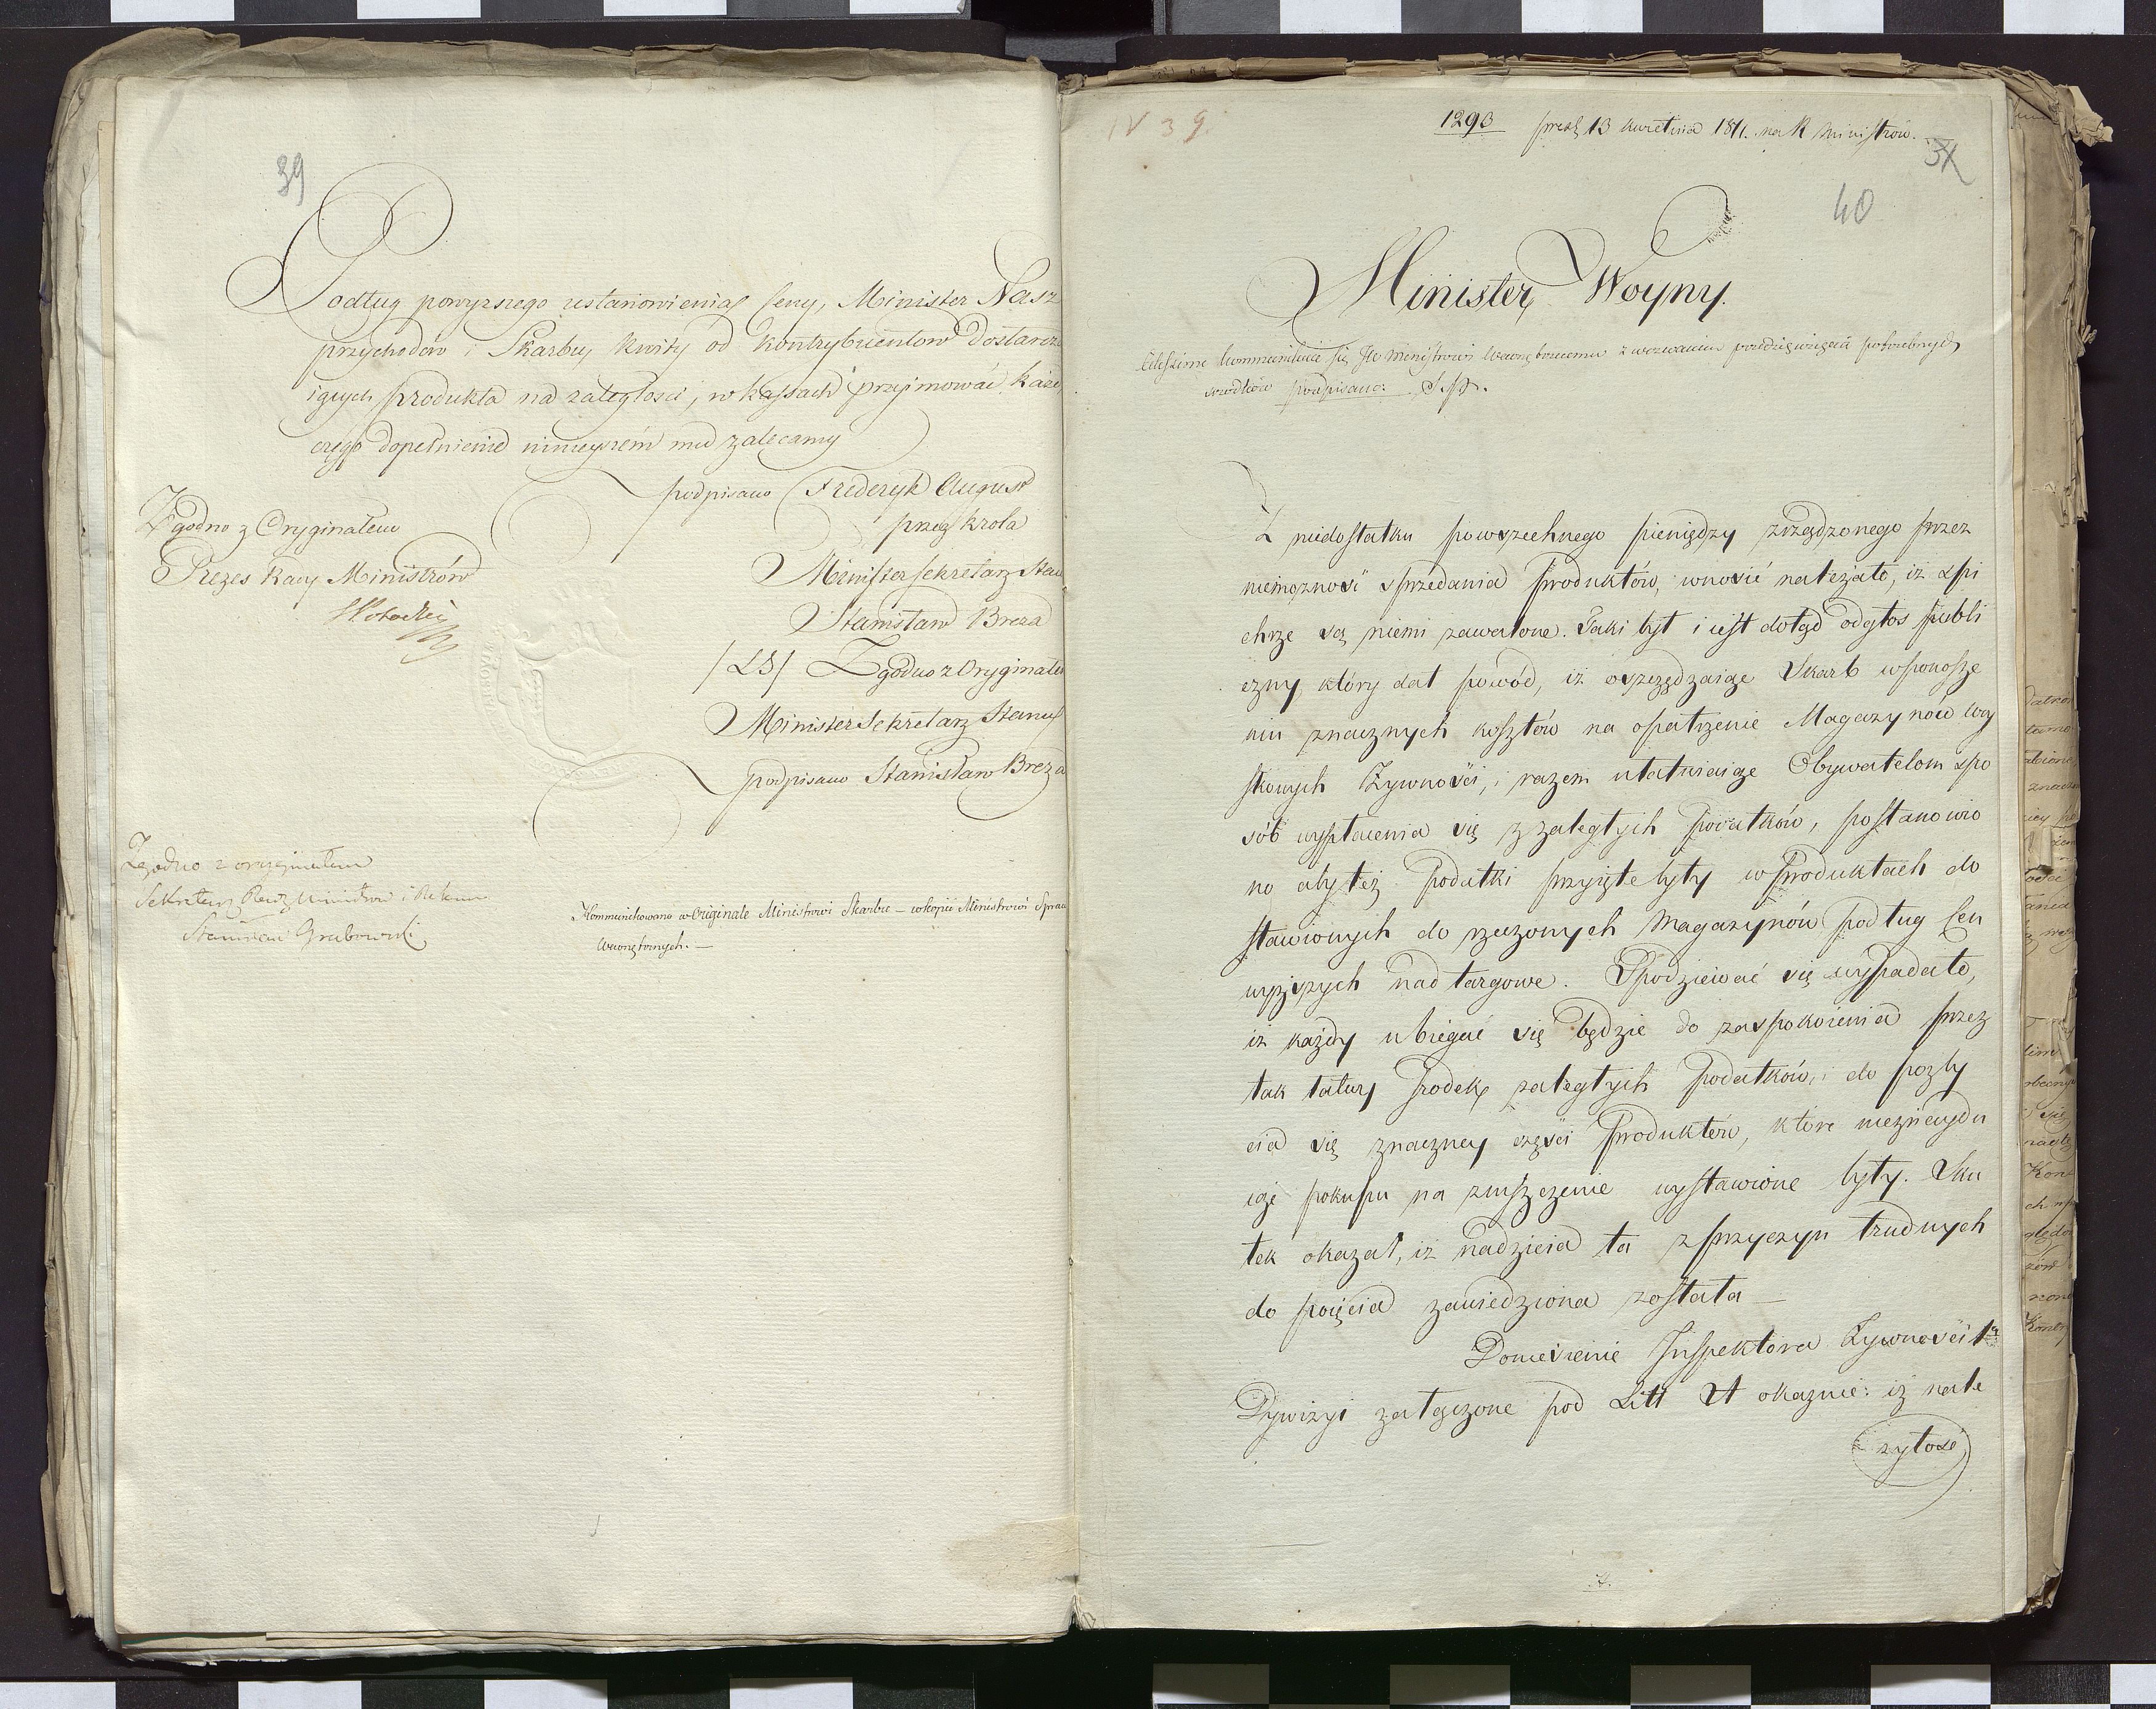 39
Podług powyższego ustanowienia Ceny, Minister Nasz
przychodów i Skarbu kwity od kontrybuentow dostarcza
iących produkta na zaległości, w kassach przejmować każe,
czego dopełnienie ninieyszém mu zalecamy
podpisano Frederyk August
przez krola
Minister Sekretarz Stanu
Stanisław Breza
/LS/ Zgodno z Oryginałem
Minister Sekretarz Stanu
podpisano Stanisław Breza
Zgodno z Oryginałem
Prezes Rady Ministrów
SPotocki
Zgodno z oryginałem
Sekretarz Rady Ministrów i
Stanisław Grabowski
Kommunikowano w Originale Ministrowi Skarbu – w kopii Ministrowi Spraw
Wewnętrznych. —
IV 39.
1293 prez 13 kwietnia 1811. na R Ministrów.
34
40
Minister Woyny.
kommunikuie się JW Ministrowi Wewnętrznemu z wezwaniem przedsięwzięcia potrzebnych
srodków podpisano: S.P.
Z niedostatku powszechnego pieniędzy zrządzonego przez
niemożność sprzedania Produktów, wnosić należało, iż Spi
chrze są niemi zawalone. Taki był i iest dotąd odgłos publi
czny, który dał powód, iż oszczędzaiąc Skarb w ponosze
niu znacznych kosztów na opatrzenie Magazynów Woy
skowych Żywności, i razem ułatwiaiąc Obywatelom spo
sób wypłacenia się z zaległych Podatków, postanowio
no aby też Podatki przyięte były w Produktach do
stawionych do rzeczonych Magazynów podług Cen
wyższych nad targowe. Spodziewać się wypadało,
iż każdy ubiegać się będzie do zaspokoienia przez
tak łatwy Srodek zaległych Podatków, i do pozby
cia się znaczney części Produktów, które nieznayduu
iąc pokupu na zniszczenie wystawione były. Sku
tek okazał, iż nadzieia ta z przyczyn trudnych
do poięcia zawiedziona została —
Doniesienie Inspektora Żywności 1ey
Dywizyi załączone pod Litt A okazuie: iż nale
żytość